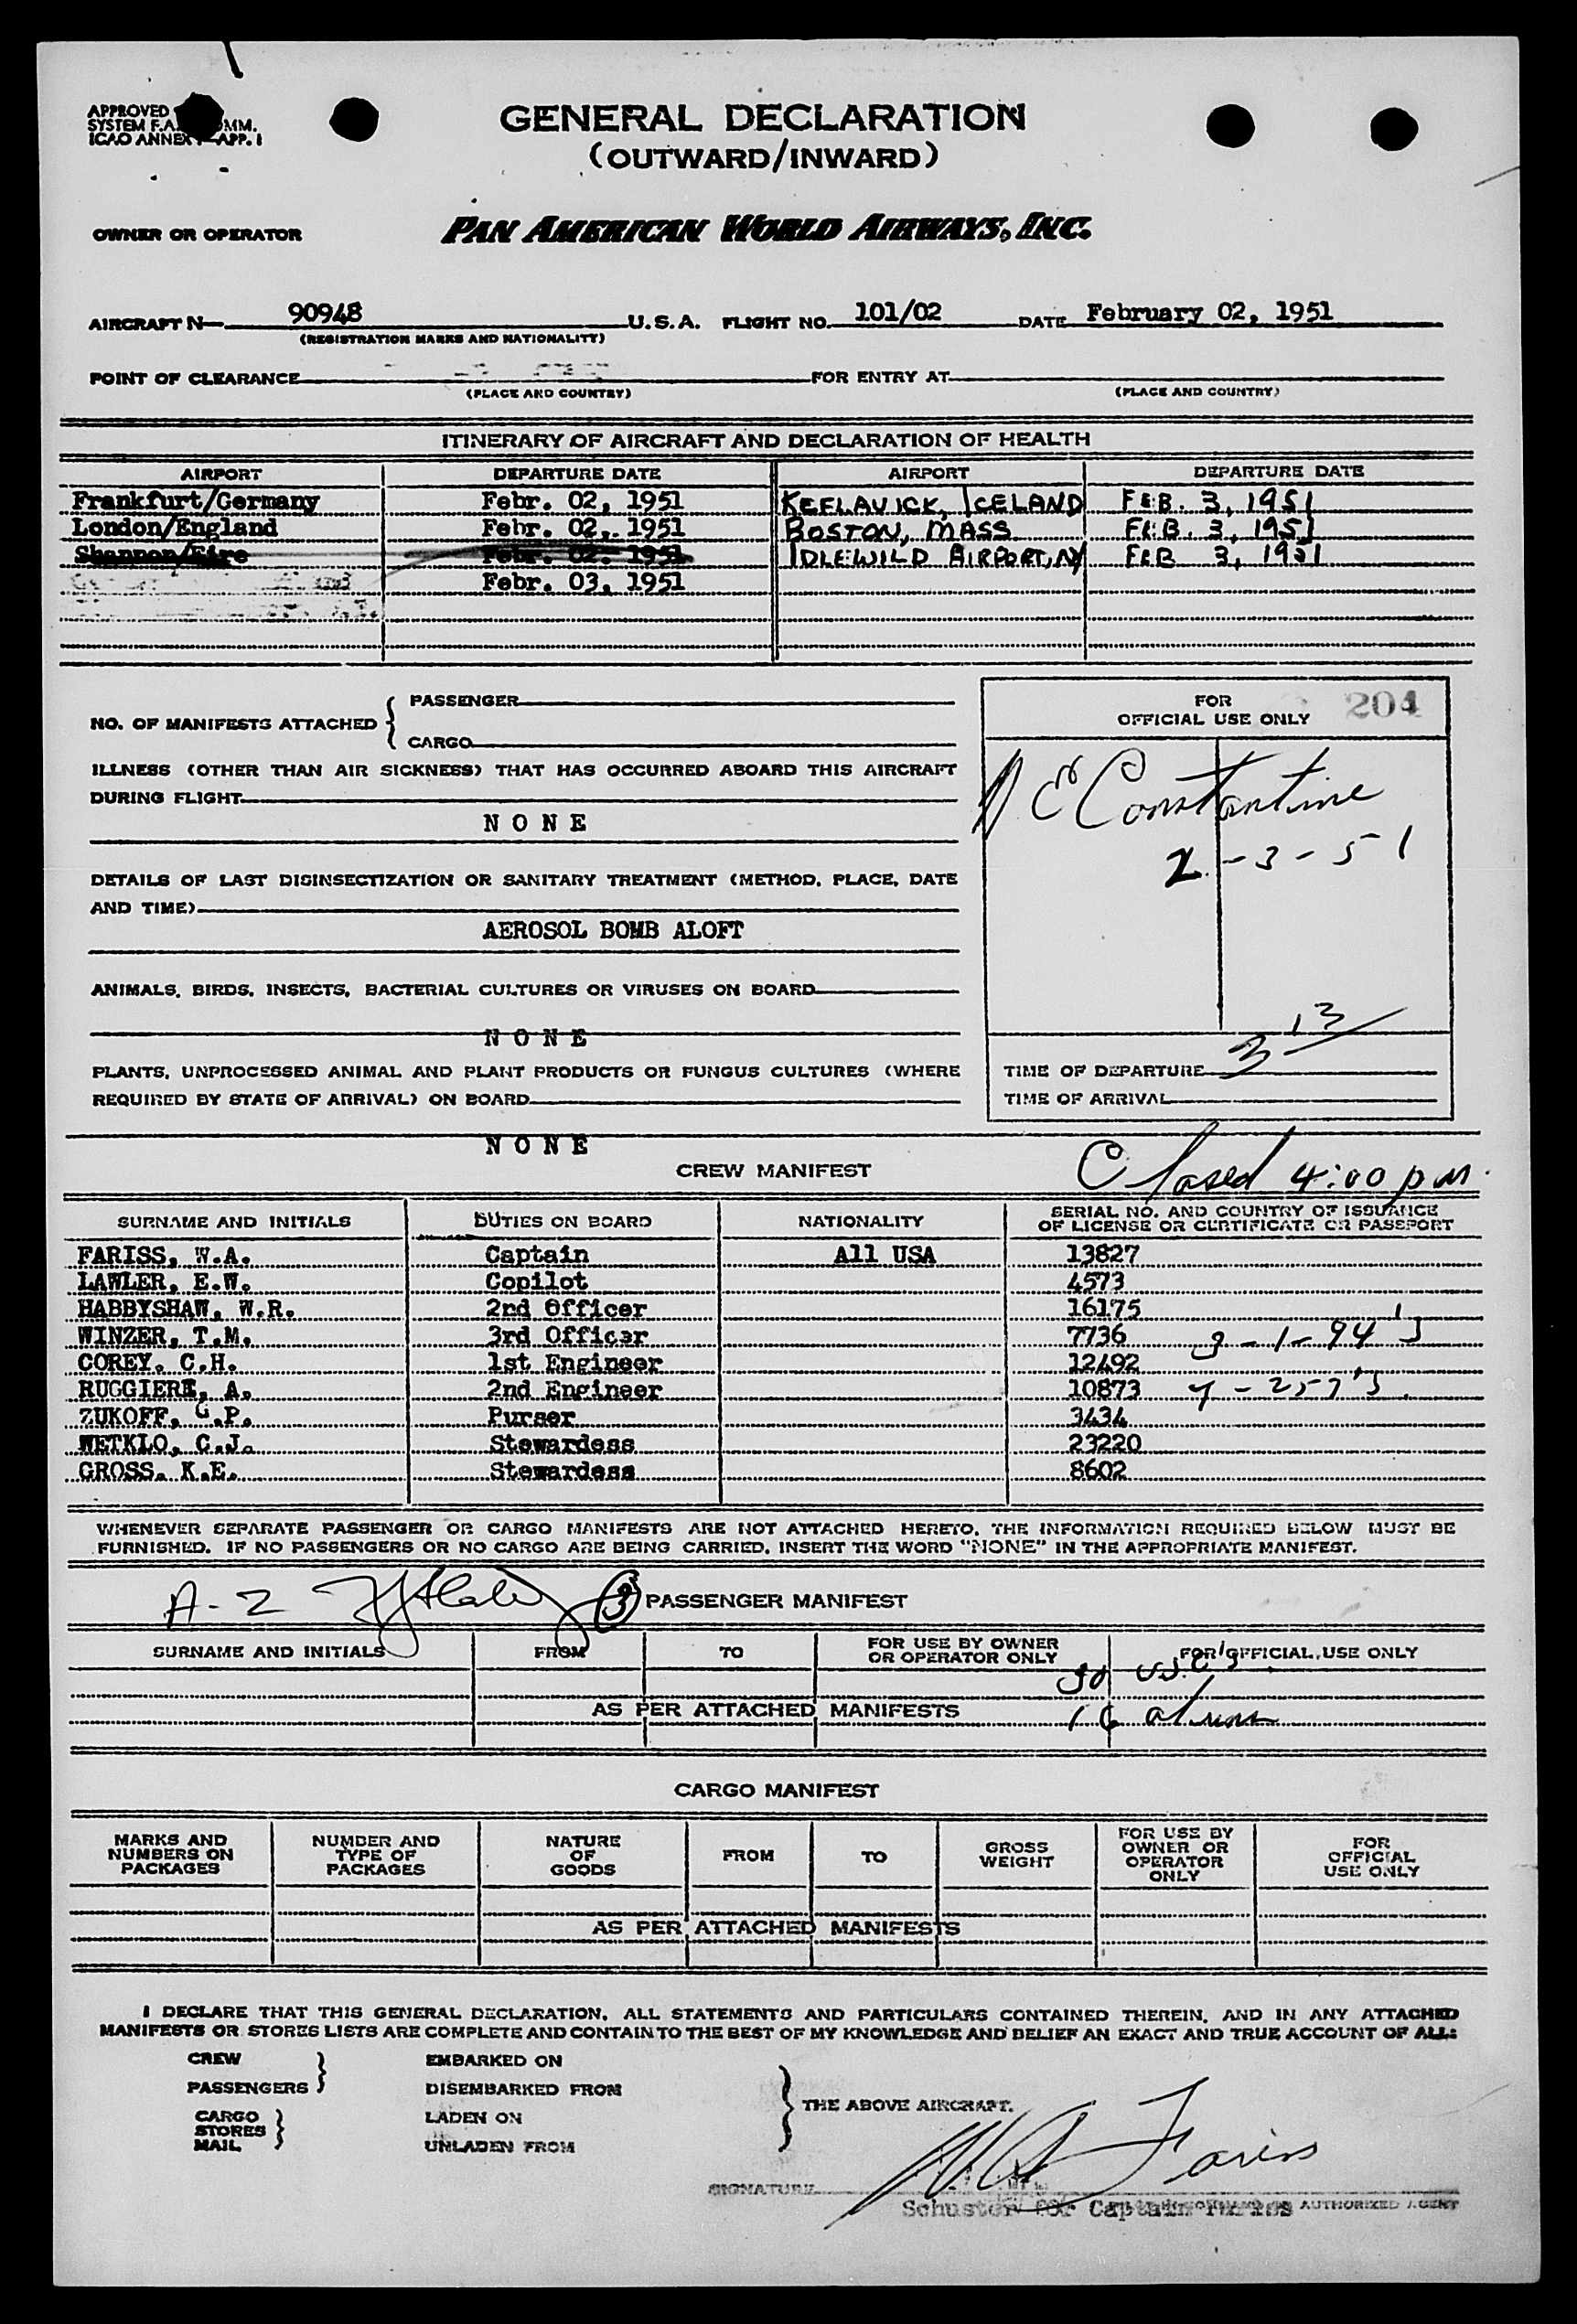 APPROVED
SYSTEM F.A. COMM.
ICAO ANNEX APP. 1
GENERAL DECLARATION
(OUTWARD/INWARD)
OWNER OR OPERATOR PAN AMERICAN WORLD AIRWAYS, INC.
AIRCRAFT N— 90948 U.S.A. FLIGHT NO. 101/02 DATE February 02, 1951
(REGISTRATION MARKS AND NATIONALITY)
POINT OF CLEARANCE FOR ENTRY AT
(PLACE AND COUNTRY) (PLACE AND COUNTRY)
ITINERARY OF AIRCRAFT AND DECLARATION OF HEALTH
AIRPORT DEPARTURE DATE AIRPORT DEPARTURE DATE
Frankfurt/Germany Febr. 02, 1951 KEFLAVICK, ICELAND FEB. 3, 1951
London/England Febr. 02, 1951 BOSTON, MASS FEB. 3, 1951
Shannon/Eire Febr. 02. 1951 IDLEWILD AIRPORT, NY FEB 3, 1951
Febr. 03, 1951
NO. OF MANIFESTS ATTACHED { PASSENGER
CARGO
FOR
OFFICIAL USE ONLY 204
ILLNESS (OTHER THAN AIR SICKNESS) THAT HAS OCCURRED ABOARD THIS AIRCRAFT
DURING FLIGHT
NONE
E Constantine
2-3-51
DETAILS OF LAST DISINSECTIZATION OR SANITARY TREATMENT (METHOD, PLACE, DATE
AND TIME)
AEROSOL BOMB ALOFT
ANIMALS, BIRDS, INSECTS, BACTERIAL CULTURES OR VIRUSES ON BOARD
NONE
PLANTS, UNPROCESSED ANIMAL AND PLANT PRODUCTS OR FUNGUS CULTURES (WHERE
REQUIRED BY STATE OF ARRIVAL) ON BOARD
NONE
TIME OF DEPARTURE 3 13
TIME OF ARRIVAL
Closed 4:00 pm.
CREW MANIFEST
SURNAME AND INITIALS DUTIES ON BOARD NATIONALITY SERIAL NO. AND COUNTRY OF ISSUANCE
OF LICENSE OR CERTIFICATE OR PASSPORT
FARISS, W.A. Captain All USA 13827
LAWLER, E.W. Copilot 4573
HABBYSHAW, W.R. 2nd Officer 16175
WINZER, T.M. 3rd Officer 7736
COREY, C.H. 1st Engineer 12492
RUGGIERE, A. 2nd Engineer 10873
ZUKOFF, G.P. Purser 3434
WETKLO, C.J. Stewardess 23220
GROSS, K.E. Stewardess 8602
WHENEVER SEPARATE PASSENGER OR CARGO MANIFESTS ARE NOT ATTACHED HERETO, THE INFORMATION REQUIRED BELOW MUST BE
FURNISHED. IF NO PASSENGERS OR NO CARGO ARE BEING CARRIED, INSERT THE WORD "NONE" IN THE APPROPRIATE MANIFEST.
A-2 3 PASSENGER MANIFEST
SURNAME AND INITIALS FROM TO FOR USE BY OWNER
OR OPERATOR ONLY FOR OFFICIAL USE ONLY
30 USC's
AS PER ATTACHED MANIFESTS 16 aliens
CARGO MANIFEST
MARKS AND
NUMBERS ON
PACKAGES
NUMBER AND
TYPE OF
PACKAGES
NATURE
OF
GOODS
FROM
TO
GROSS
WEIGHT
FOR USE BY
OWNER OR
OPERATOR
ONLY
FOR
OFFICIAL
USE ONLY
AS PER ATTACHED MANIFESTS
I DECLARE THAT THIS GENERAL DECLARATION, ALL STATEMENTS AND PARTICULARS CONTAINED THEREIN, AND IN ANY ATTACHED
MANIFESTS OR STORES LISTS ARE COMPLETE AND CONTAIN TO THE BEST OF MY KNOWLEDGE AND BELIEF AN EXACT AND TRUE ACCOUNT OF ALL:
CREW EMBARKED ON
PASSENGERS DISEMBARKED FROM
THE ABOVE AIRCRAFT.
CARGO LADEN ON
STORES
MAIL UNLADEN FROM
SIGNATURE WA Fariss
Schuster for Captain Fariss AUTHORIZED AGENT